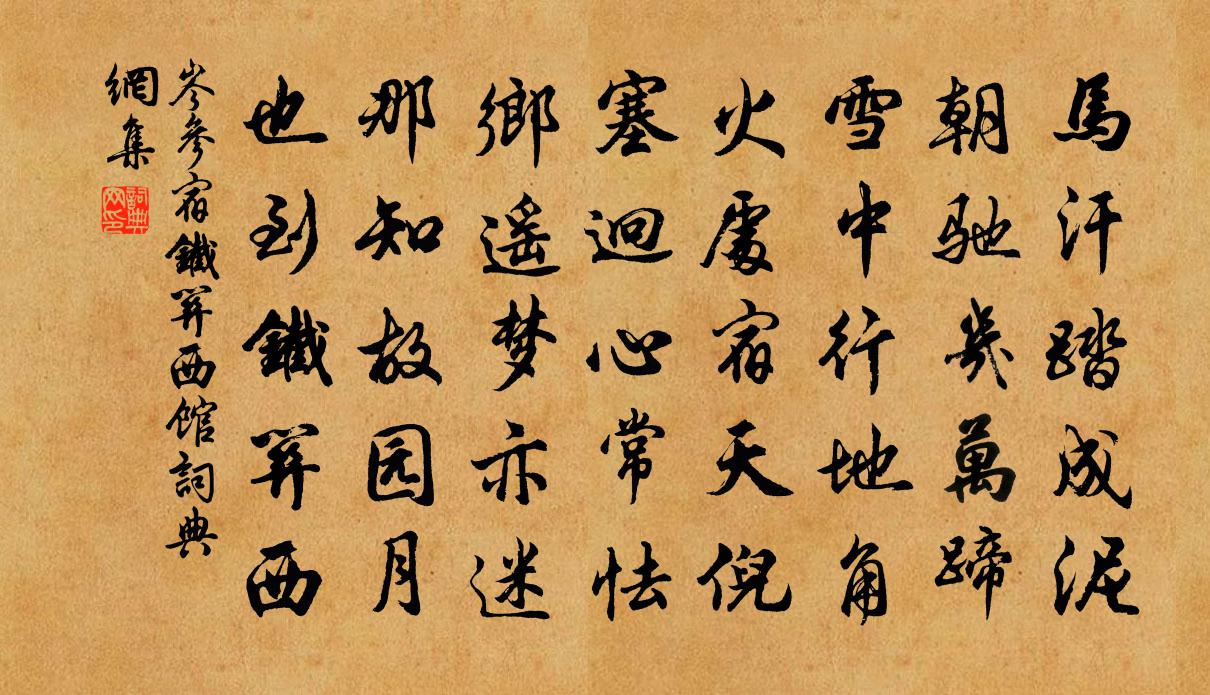 馬汗踏成泥
朝馳幾萬蹄
雪中行地角
火處宿天倪
塞迥心常怯
鄉遥梦亦迷
那知故园月
也到鐵關西
岑參宿鐵關西館詞典
網集
詞典网印